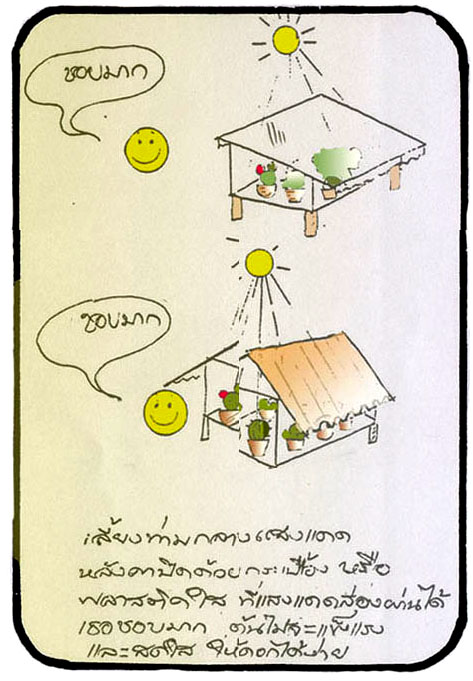 ชอบมาก
ชอบมาก
เลี้ยงท่ามกลางแสงแดด
หลังคาปิดด้วยกระเบื้อง หรือ
พลาสติคใส ที่แสงแดดส่องผ่านได้
เธอชอบมาก ต้นไม้จะแข็งแรง
และสดใส ให้ดอกได้ง่าย